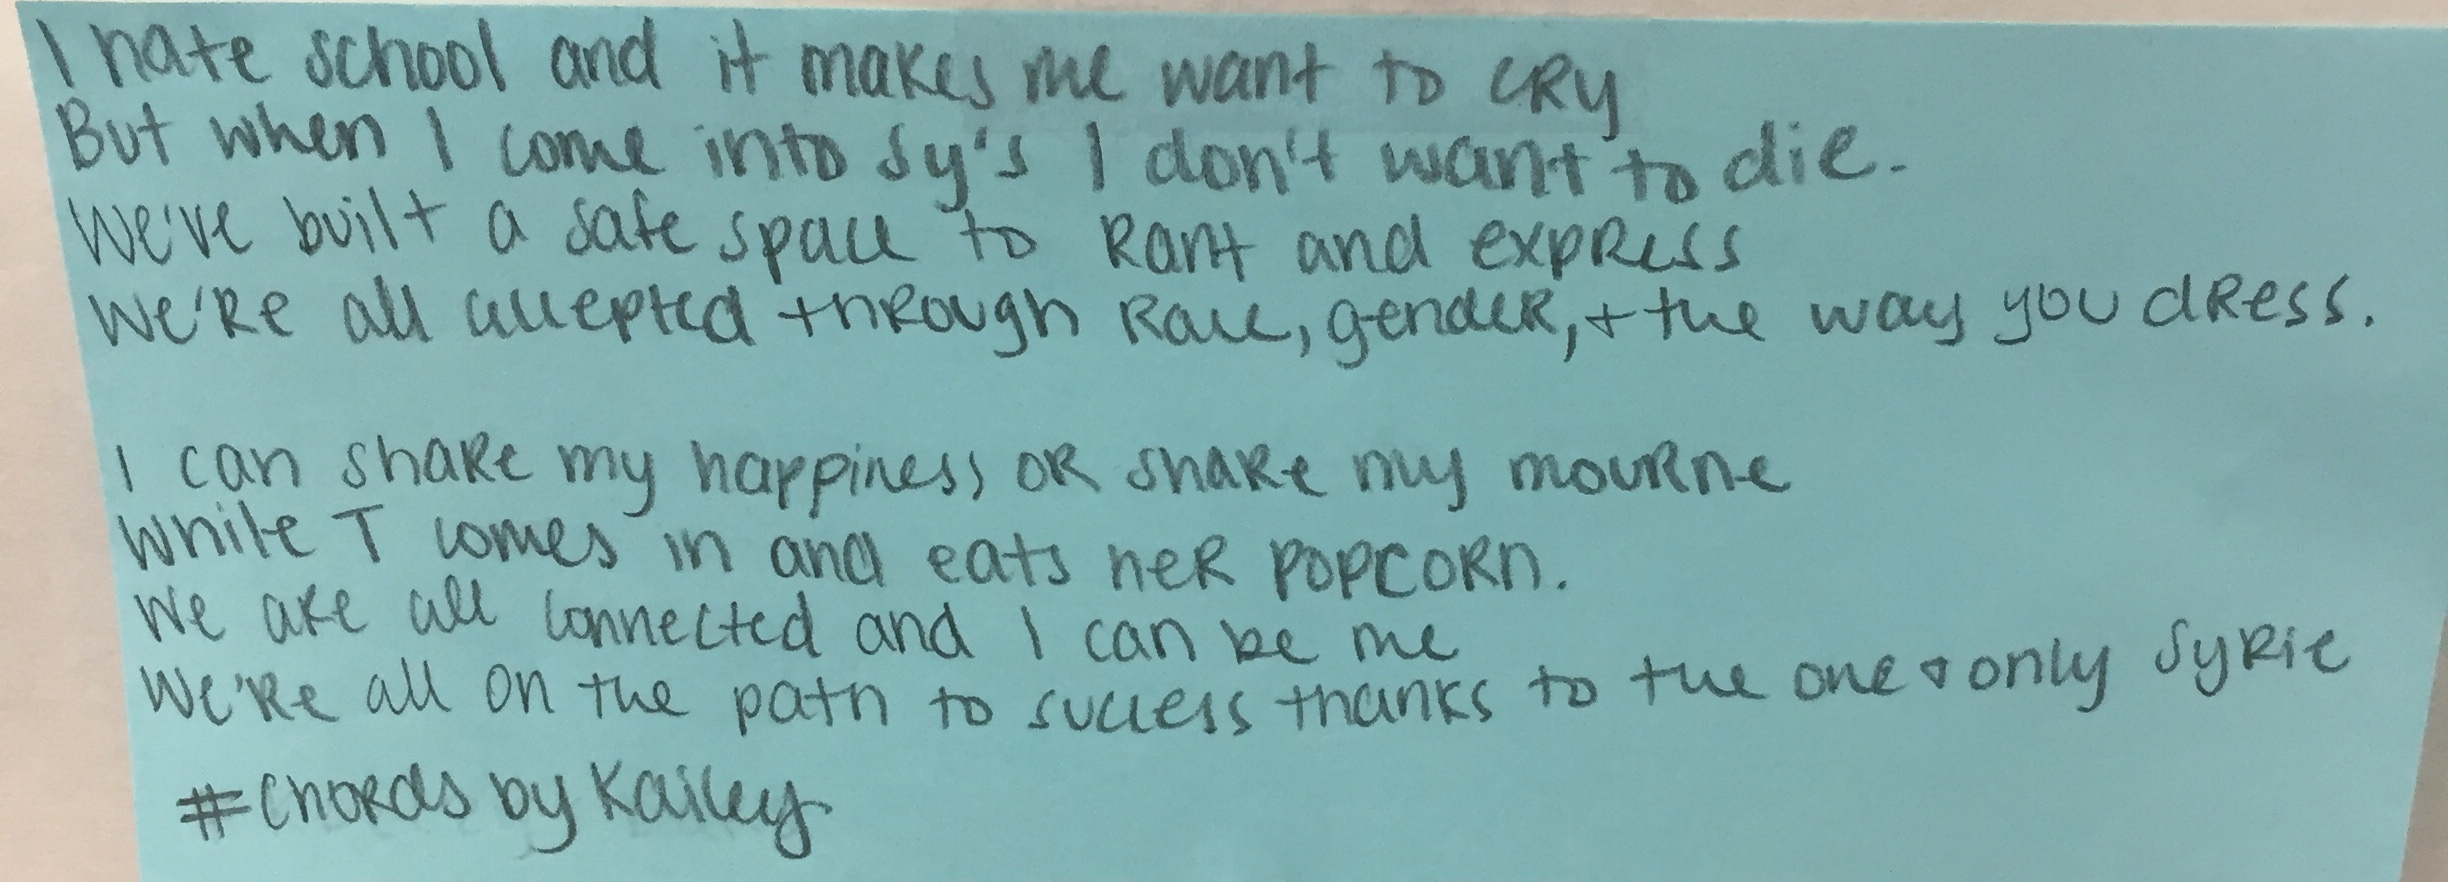 I hate school and it makes me want to cry
But when I come into Sy's I don't want to die.
We've built a safe space to Rant and express
We're all accepted through Race, gender, + the way you dress.
I can share my happiness or share my mourne
While T comes in and eats her popcorn.
We are all connected and I can be me
We're all on the path to success thanks to the one & only Syrie
#Chords by Kailey